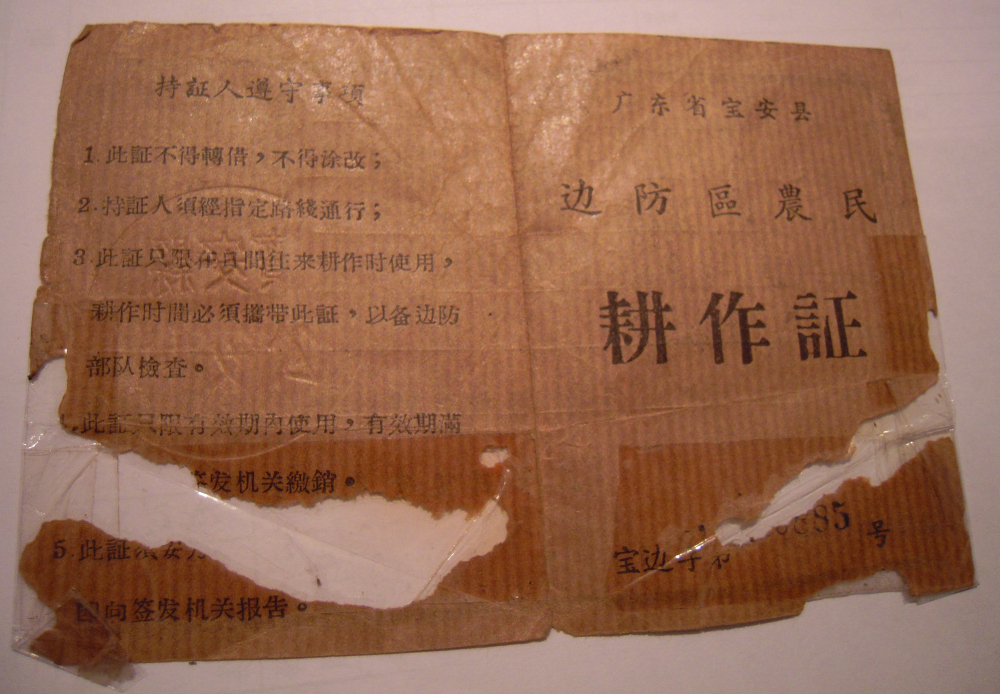 持証人遵守事项
1.此証不得轉借，不得涂改；
2.持証人須經指定路綫通行；
3.此証只限在日間往来耕作时使用，
耕作时間必須攜带此証，以备边防
部队檢查。
此証只限有效期內使用，有效期滿
签发机关繳銷。
5.此証須妥
向签发机关报告。
广东省宝安县
边防區農民
耕作証
宝边字第 85号